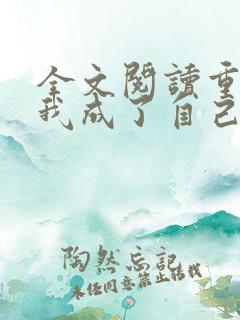 全文閱讀重
我成了自己
陶然忘記
未经同意禁止转载